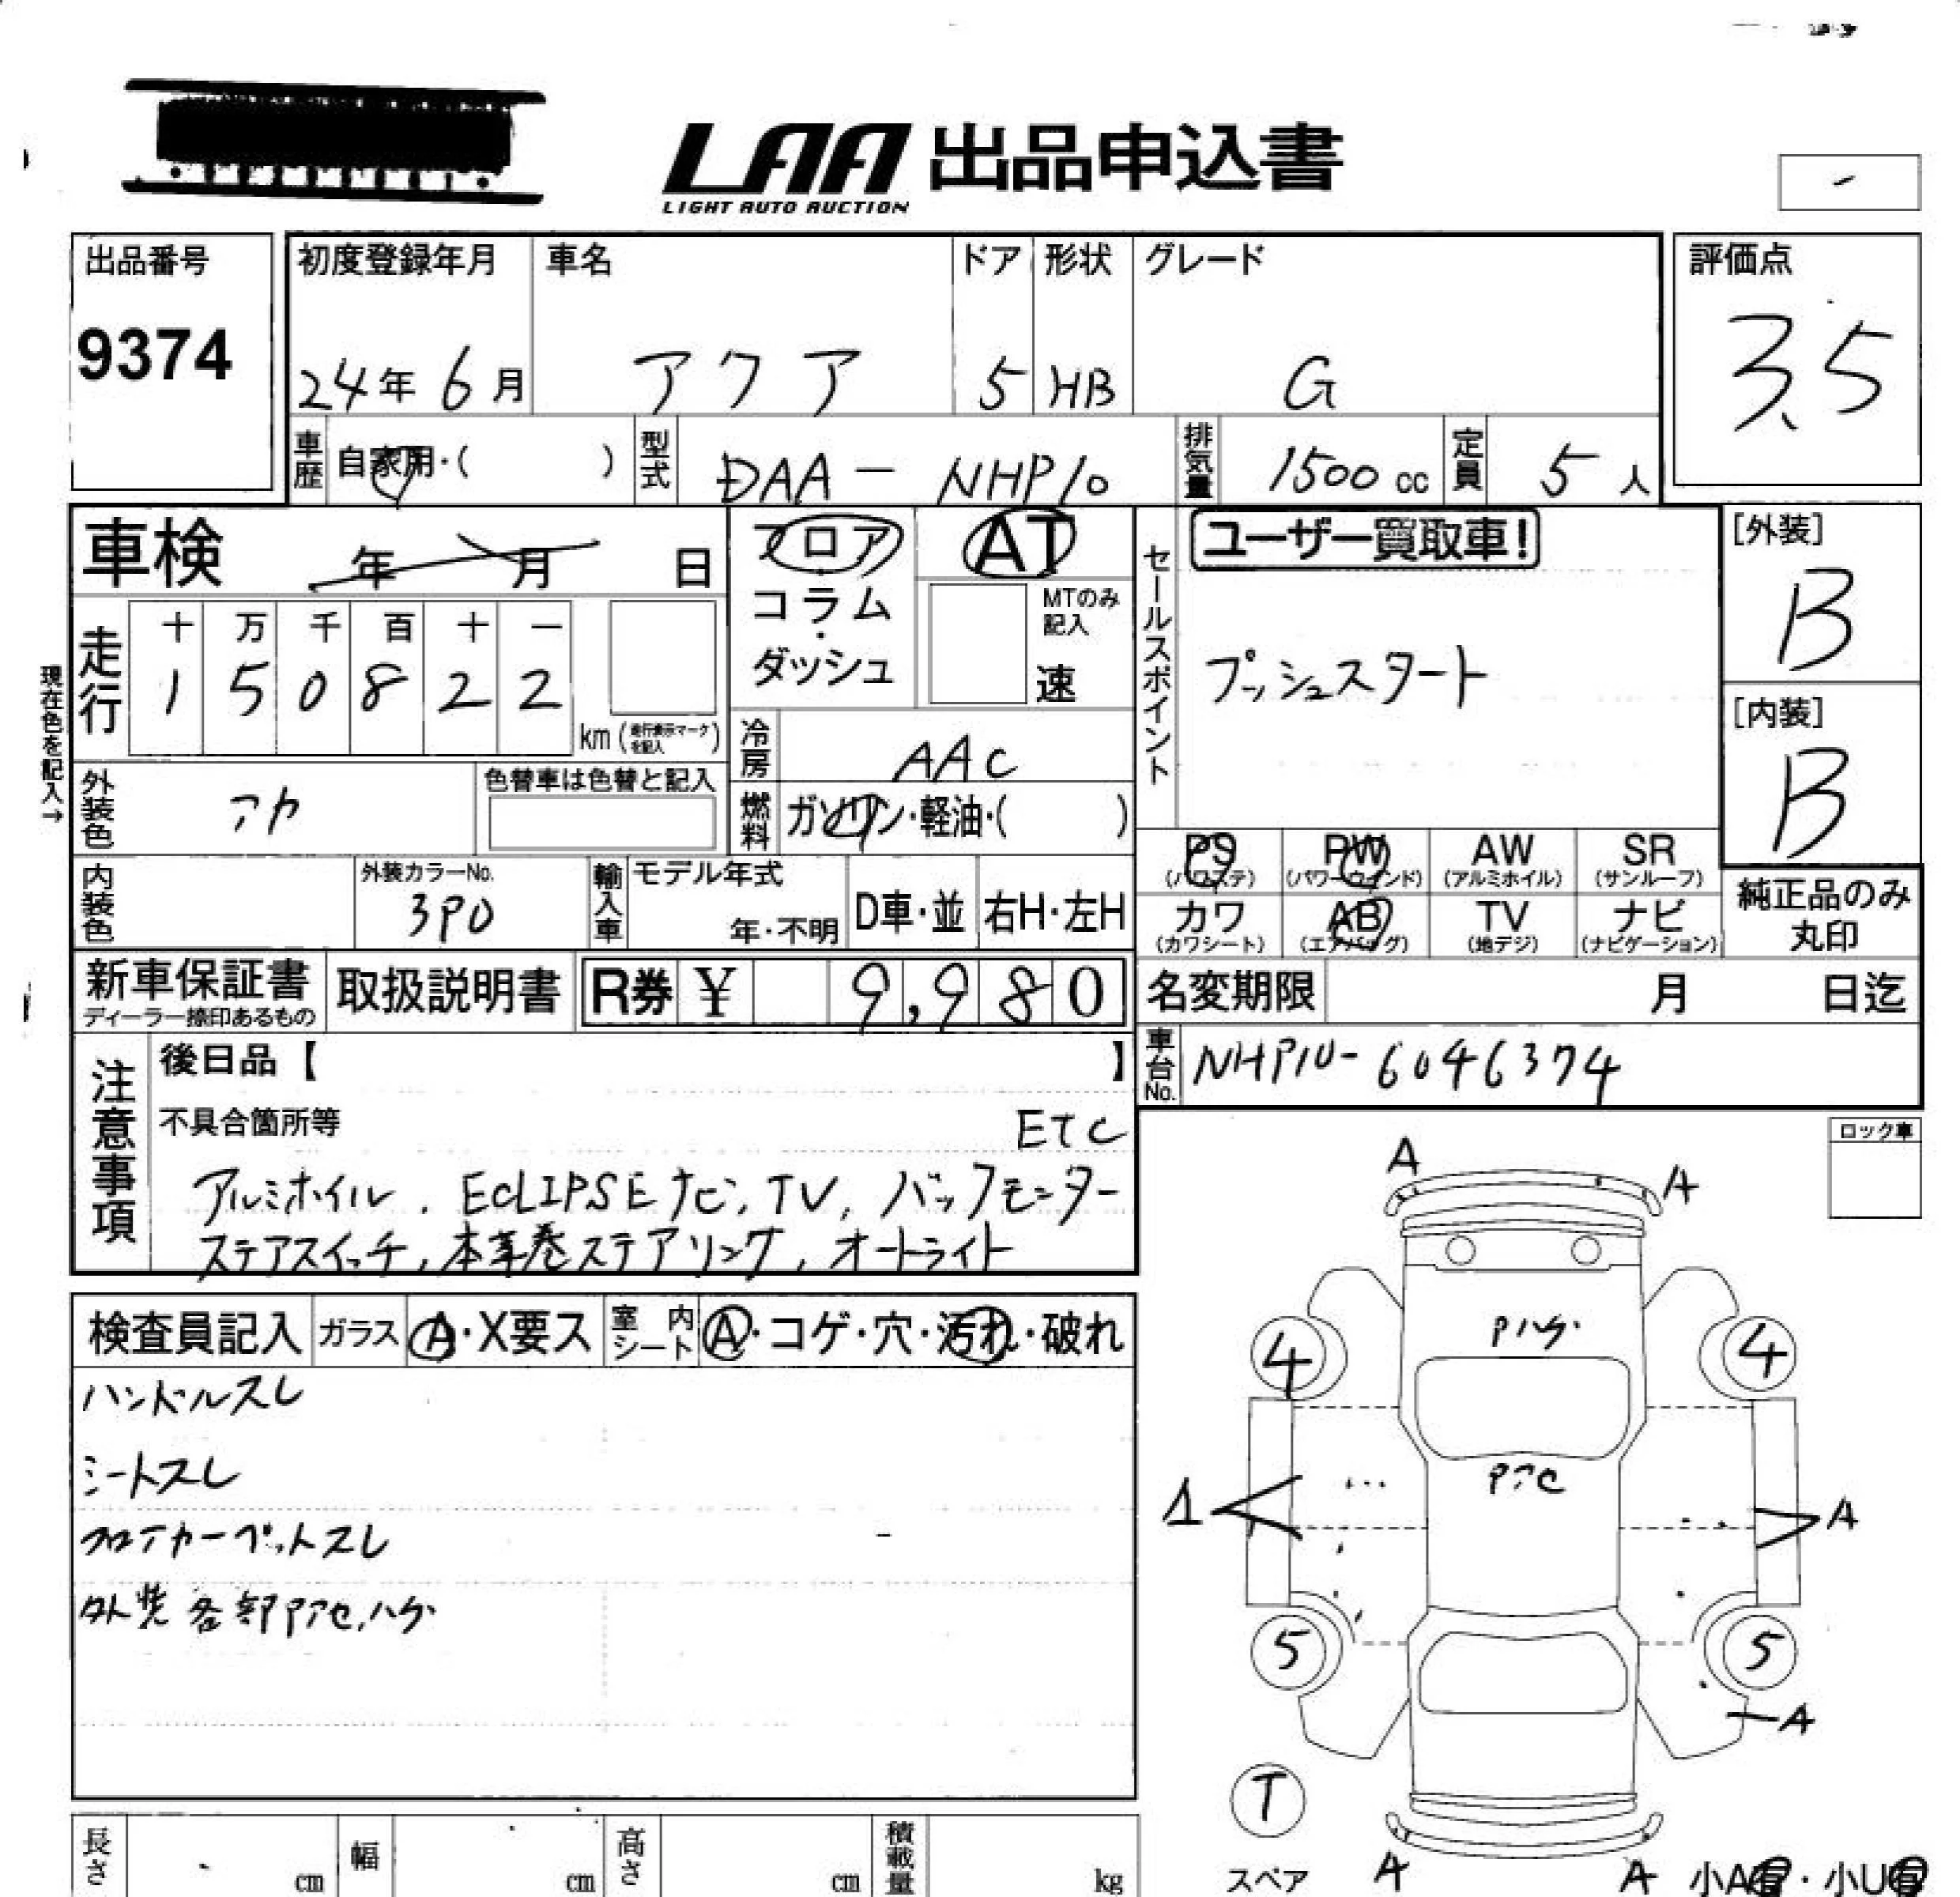 LAA 出品申込書
LIGHT AUTO AUCTION
出品番号
9374
初度登録年月 車名 ドア 形状 グレード
24年 6月 アクア 5 HB G
評価点
3.5
車歴 自家用・( ) 型式 DAA-NHP10 排気量 1500 cc 定員 5 人
車検 年 月 日
フロア・コラム・ダッシュ
AT
MTのみ記入
速
セールスポイント
ユーザー買取車!
プッシュスタート
[外装]
B
[内装]
B
現在色を記入→
走行
十 万 千 百 十 一
1 5 0 8 2 2
km(走行表示マークを記入)
冷房 AAC
外装色 アカ
色替車は色替と記入
燃料 ガソリン・軽油・( )
内装色
外装カラーNo.
3P0
輸入車 モデル年式
年・不明
D車・並 右H・左H
PS PW AW SR
(パワステ) (パワーウインド) (アルミホイル) (サンルーフ)
カワ AB TV ナビ
(カワシート) (エアバッグ) (地デジ) (ナビゲーション)
純正品のみ
丸印
新車保証書
ディーラー捺印あるもの
取扱説明書
R券 ¥ 9,980
名変期限 月 日迄
車台No. NHP10-6046374
注意事項
後日品【 】
不具合箇所等
ETC
アルミホイル, ECLIPSEナビ, TV, バックモニター
ステアスイッチ, 本革巻ステアリング, オートライト
ロック車
検査員記入 ガラス A・X要ス 室内シート A・コゲ・穴・汚れ・破れ
ハンドルスレ
シートスレ
フロアカーペットスレ
外装各部Pアセ,ハゲ
A
A
Pハゲ
4
4
Pアセ
1
A
5
5
A
T
スペア
A
A
小A有・小U有
長さ cm 幅 cm 高さ cm 積載量 kg